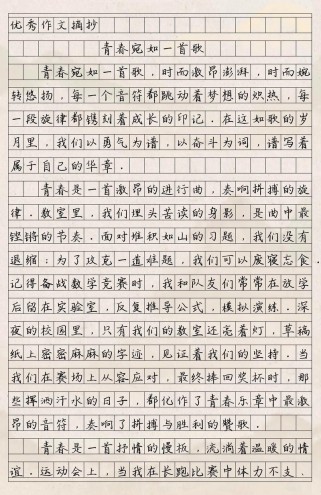 优秀作文摘抄
青春宛如一首歌
青春宛如一首歌，时而激昂澎湃，时而婉
转悠扬，每一个音符都跳动着梦想的炽热，每
一段旋律都镌刻着成长的印记。在这如歌的岁
月里，我们以勇气为谱，以奋斗为词，谱写着
属于自己的华章。
青春是一首激昂的进行曲，奏响拼搏的旋
律。教室里，我们埋头苦读的身影，是曲中最
铿锵的节奏。面对堆积如山的习题，我们没有
退缩；为了攻克一道难题，我们可以废寝忘食。
记得备战数学竞赛时，我和队友们常常在放学
后留在实验室，反复推导公式，模拟演练。深
夜的校园里，只有我们的教室还亮着灯，草稿
纸上密密麻麻的字迹，见证着我们的坚持。当
我们在赛场上从容应对，最终捧回奖杯时，那
些挥洒汗水的日子，都化作了青春乐章中最激
昂的音符，奏响了拼搏与胜利的赞歌。
青春是一首抒情的慢板，流淌着温暖的情
谊。运动会上，当我在长跑比赛中体力不支、